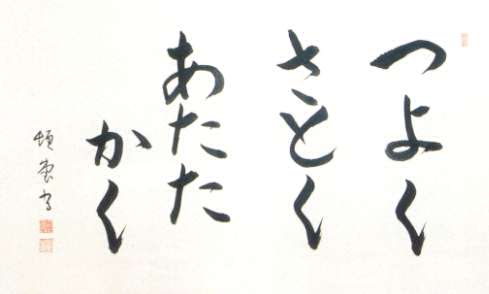 つよく
さとく
あたた
かく